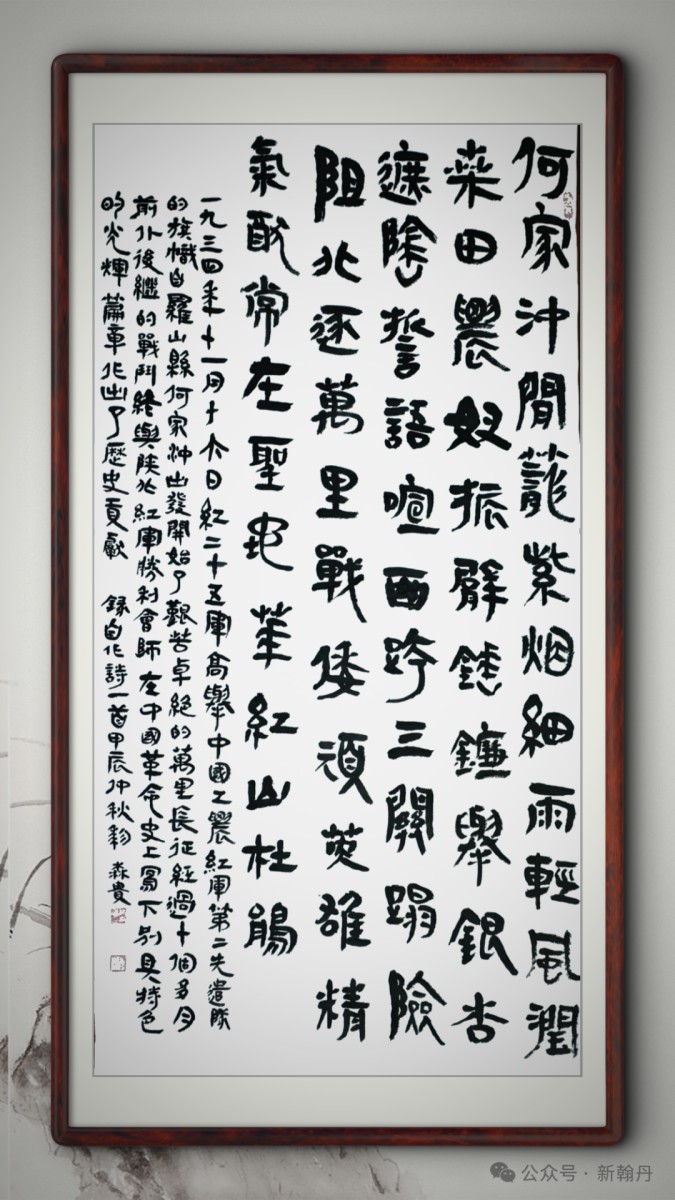 何家冲間蘢紫烟細雨輕風潤
桑田農奴振臂鐮舉銀杏
遮陰誓語喧西跨三關蹋險
阻北逐萬里戰倭頑英雄精
氣常在聖地紅山杜鵑
一九三四年十一月十六日紅二十五軍高舉中國工農紅軍第二先遣隊
的旗幟自羅山縣何家冲出發開始了艱苦卓絕的萬里長征經過十個多月
前仆後繼的戰鬥終與陝北紅軍勝利會師在中國革命史上寫下別具特色
的光輝篇章作出了歷史貢獻 錄自作詩一首甲辰仲秋 森貴
公众号·新翰丹